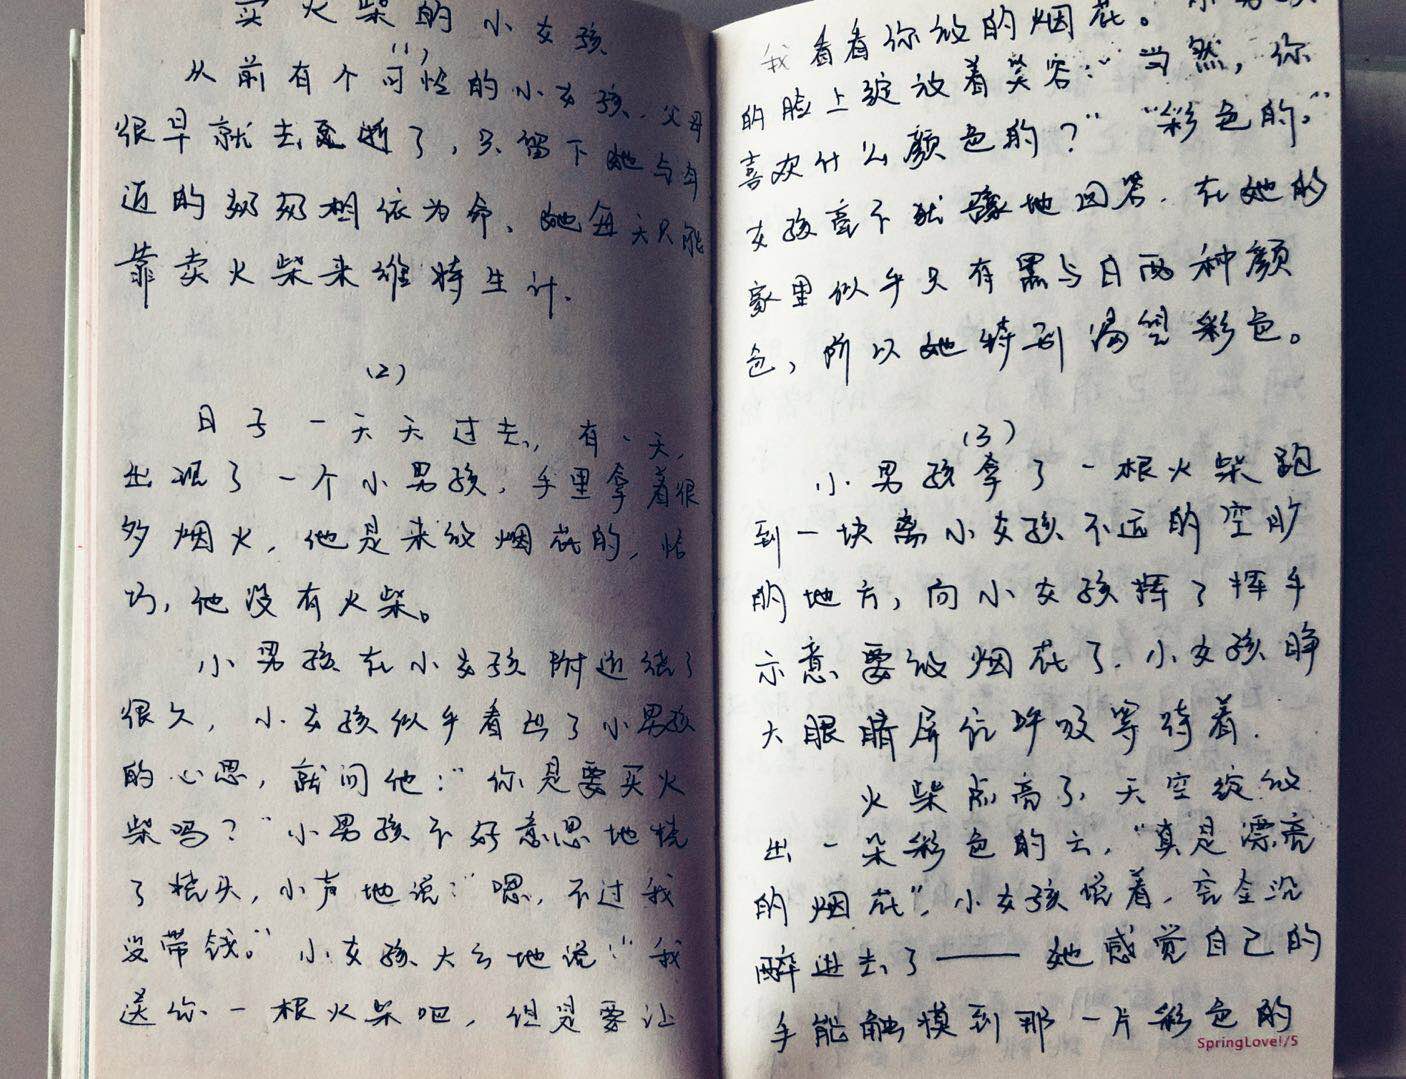 买火柴的小女孩
(1)
从前有个可怜的小女孩.父母
很早就去逝了，只留下她与年
迈的奶奶相依为命、她每天只能
靠卖火柴来维持生计.
(2)
日子一天天过去，有一天，
出现了一个小男孩，手里拿着很
多烟火，他是来放烟花的，恰
巧，他没有火柴。
小男孩在小女孩附近绕了
很久，小女孩似乎看出了小男孩
的心思，就问他：“你是要买火
柴吗？”小男孩不好意思地挠
了挠头，小声地说：“嗯，不过我
没带钱。”小女孩大方地说：“我
送你一根火柴吧，但是要让
我看看你放的烟花。”小男孩
的脸上绽放着笑容：“当然，你
喜欢什么颜色的？”“彩色的。”
女孩毫不犹豫地回答.在她的
家里似乎只有黑与白两种颜
色，所以她特别渴望彩色。
(3)
小男孩拿了一根火柴跑
到一块离小女孩不远的空旷
的地方，向小女孩挥了挥手
示意要放烟花了.小女孩睁
大眼睛屏住呼吸等待着.
火柴点亮了，天空绽放
出一朵彩色的云，“真是漂亮
的烟花”，小女孩说着，完全沉
醉进去了——她感觉自己的
手能触摸到那一片彩色的
SpringLove!/5